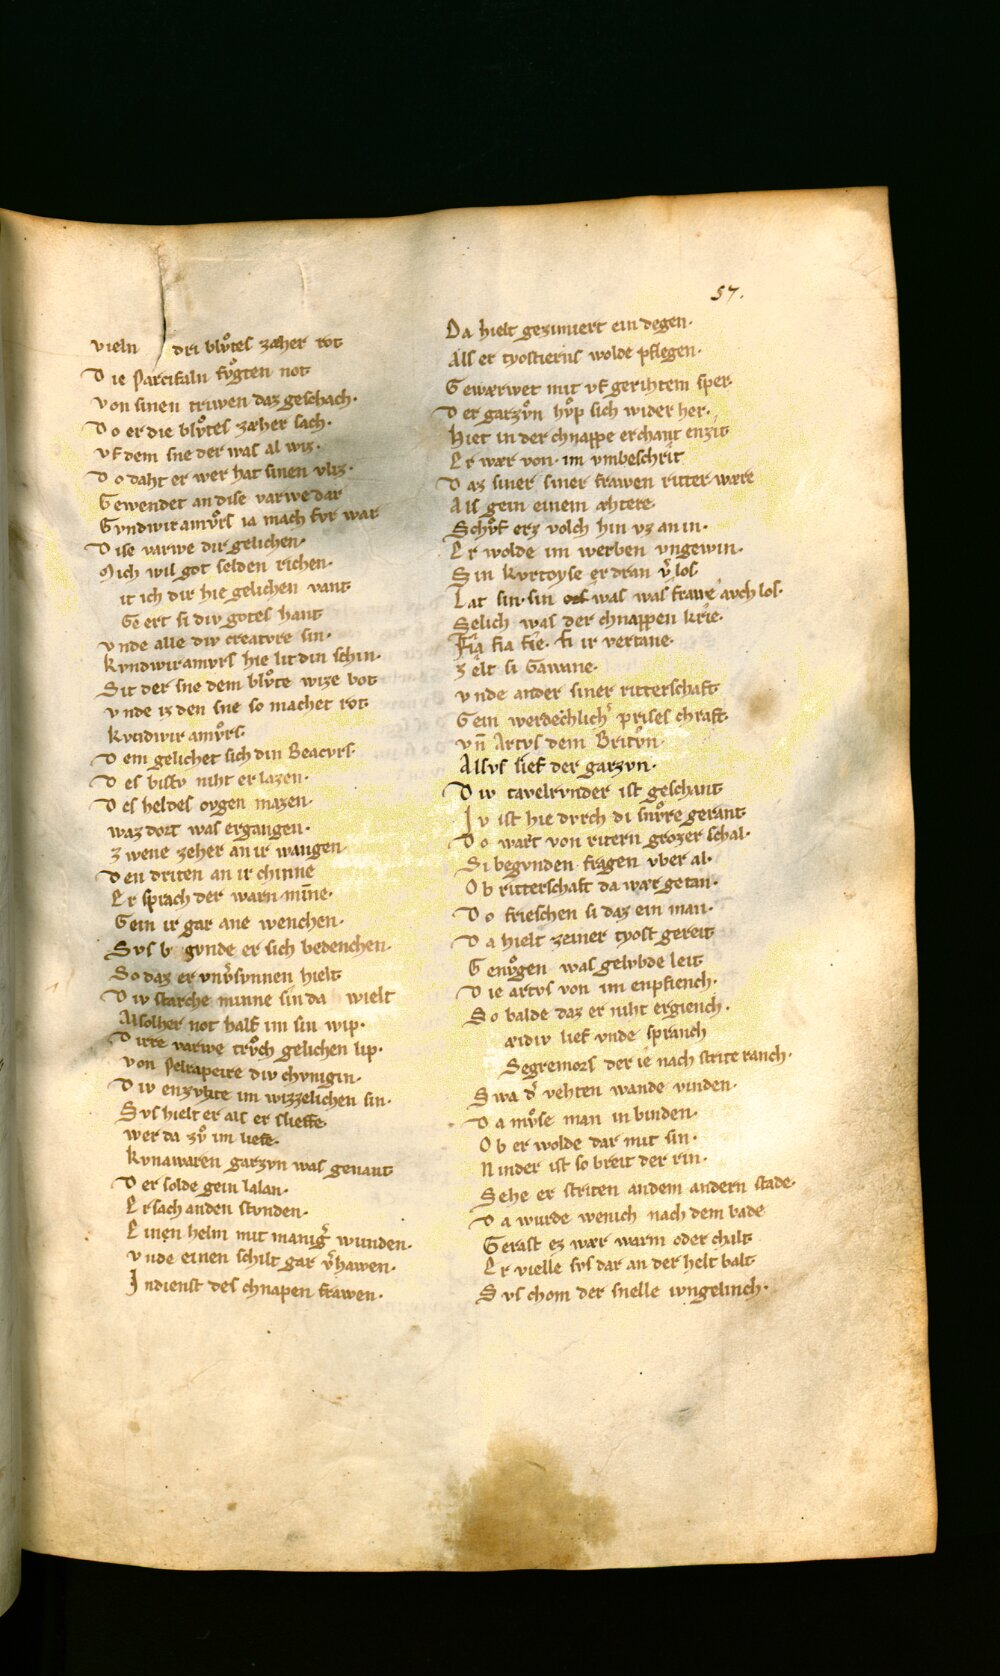 57.
vieln dri blvͦtes zæher rot
Die Parcifaln fvͦgten not
von sinen triwen daz geschach·
Do er die blvͦtes zæher sach·
vf dem sne der was al wiz·
Do daht er wer hat sinen vliz·
Gewendet an dise varwe dar
Gvndwiramvͦrs ia mach fvr war
Dise varwe dir gelichen·
Mich wil got selden richen·
it ich dir hie gelichen vant
Geert si div gotes hant
vnde alle div creatvre sin·
Kvndwiramvrs hie lit din schin·
Sit der sne dem blvͦte wize bot
vnde iz den sne so machet rot
Kvndwir amvͦrs·
Dem gelichet sich din Beacvrs·
Des bistv niht erlazen·
Des heldes ovgen mazen·
waz dort was ergangen·
zwene zeher an ir wangen·
Den driten an ir chinne
Er sprach der warn minne·
Gein ir gar ane wenchen·
Svs b gvnde er sich bedenchen·
So daz er vnv̉sunnen hielt
Div starche minne sin da wielt
Alsolher not half im sin wip·
Dirre varwe trvͦch gelichen lip·
von Pelrapeire div chvnigin·
Div enzvhte im wizzelichen sin·
Svs hielt er als er slieffe
wer da zvͦ im lieffe·
Kvnawaren garzvn was genant
Der solde gein lalan·
Er sach anden stvnden·
Einen helm mit manig̉ wunden·
vnde einen schilt gar v̉hawen·
In dienst des chnapen frawen·
Da hielt gezimiert ein degen·
Als er tyostierns wolde pflegen·
Gewærwet mit vf gerihtem sper·
Der garzvͦn hvͦp sich wider her·
Hiet in der chnappe erchant enzit
Er wær von im vmbeschrit
Daz siner siner frawen ritter wære
Als gein einem æhtere·
Schvͦf erz volch hin vz an in·
Er wolde im werben vngewin·
Sin kvrtoyse er dran v̉los
Lat sin· sin was was fraue avch los·
Selich was der chnappen krie·
Fia fia fie· fi ir vertane·
zelt si Gawane·
vnde ander siner ritterschaft
Gein werdechlich̉ prises chraft·
vn̄ Artvs dem Britvn·
Alsvs lief der garzvn·
Div tavelrvnder ist geschant
Iv ist hie dvrch di snvͦre gerant
Do wart von ritern grozer schal·
Si begvnden fragen vber al·
Ob ritterschaft da wær getan·
Do frieschen si daz ein man·
Da hielt zeiner tyost gereit
Genvͦgen was gelvbde leit
Die artvs von im enpfiench·
So balde daz er niht ergiench·
æidiv lief vnde spranch
Segremors der ie nach strite ranch·
Swa d̉ vehten wande vinden·
Da mvͦse man in binden·
Ob er wolde dar mit sin·
Ninder ist so breit der rin·
Sehe er striten andem andern stade·
Da wurde wenich nach dem bade
Gerast ez wær warm oder chalt
Er vielle svs dar an der helt balt
Svs chom der snelle ivngelinch·